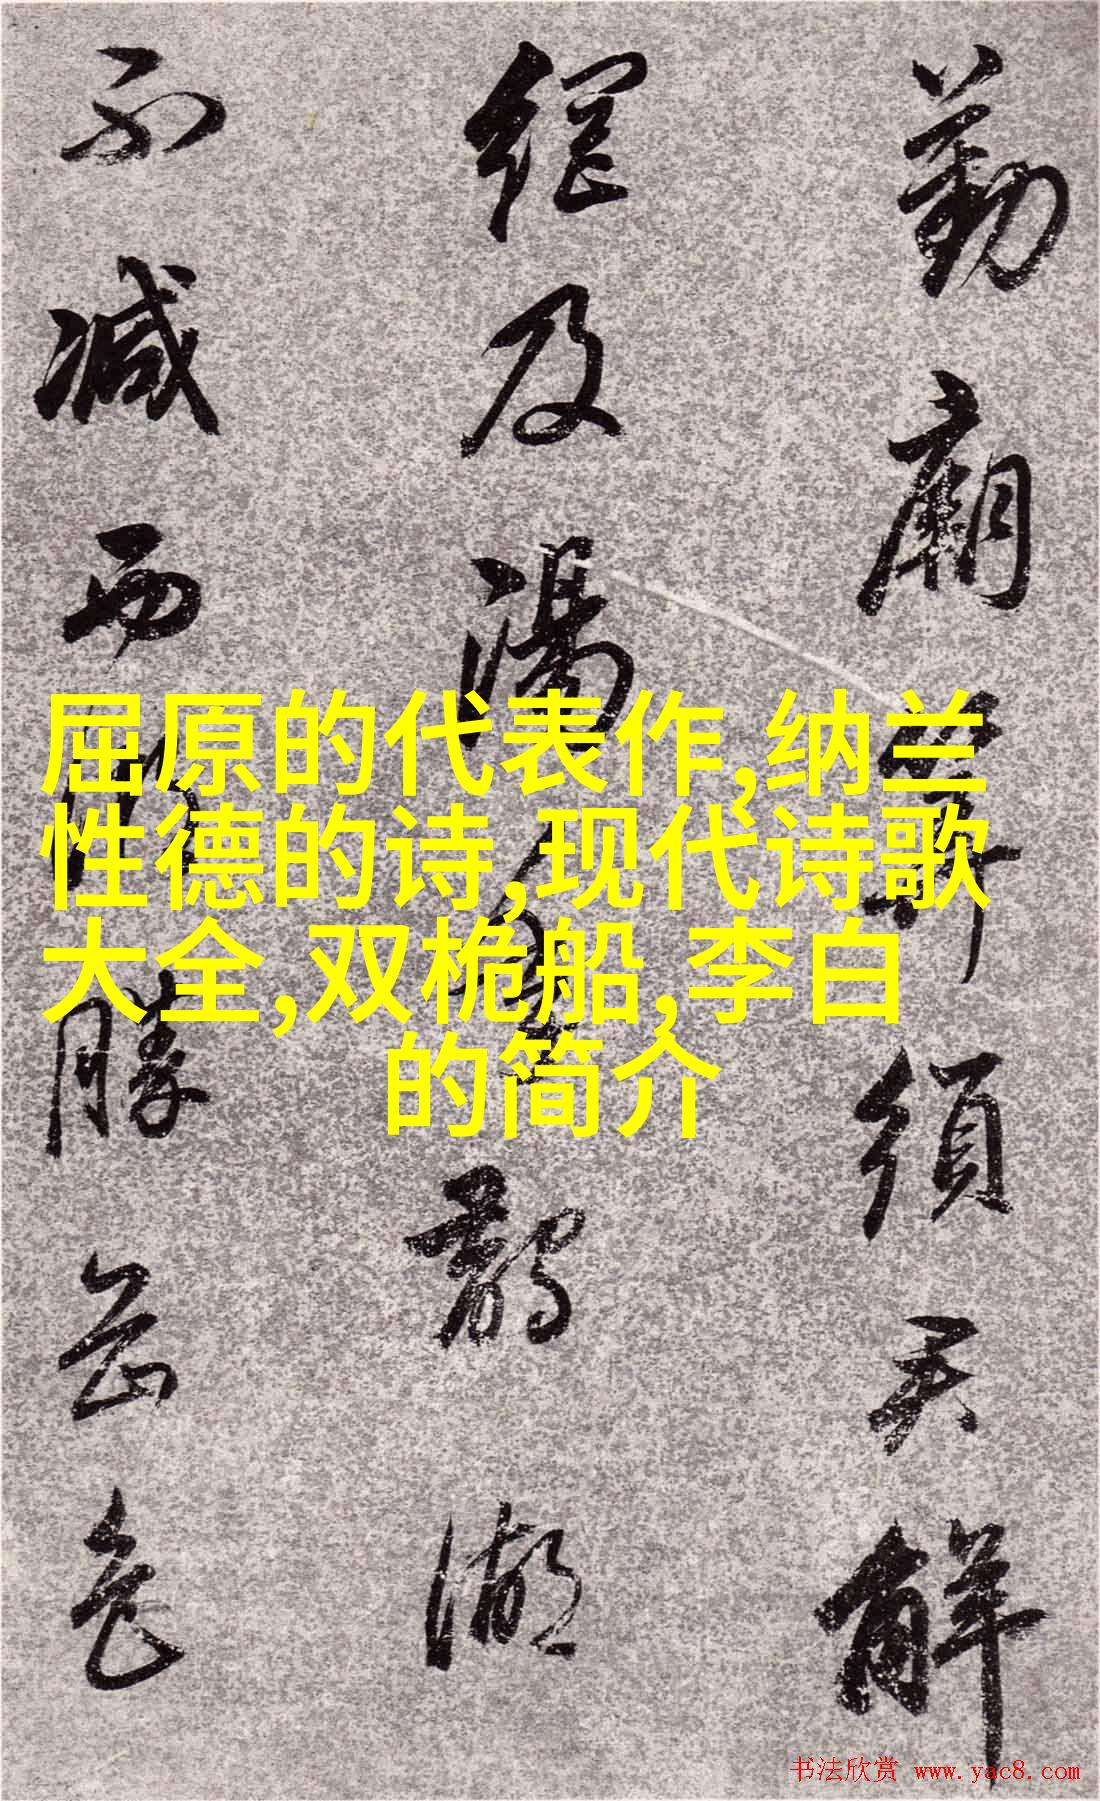 勤廟須君解
及湖
不減西勝
屈原的代表作,纳兰
性德的诗,现代诗歌
大全,双桅船,李白
的简介
书法欣赏 www.yac8.com